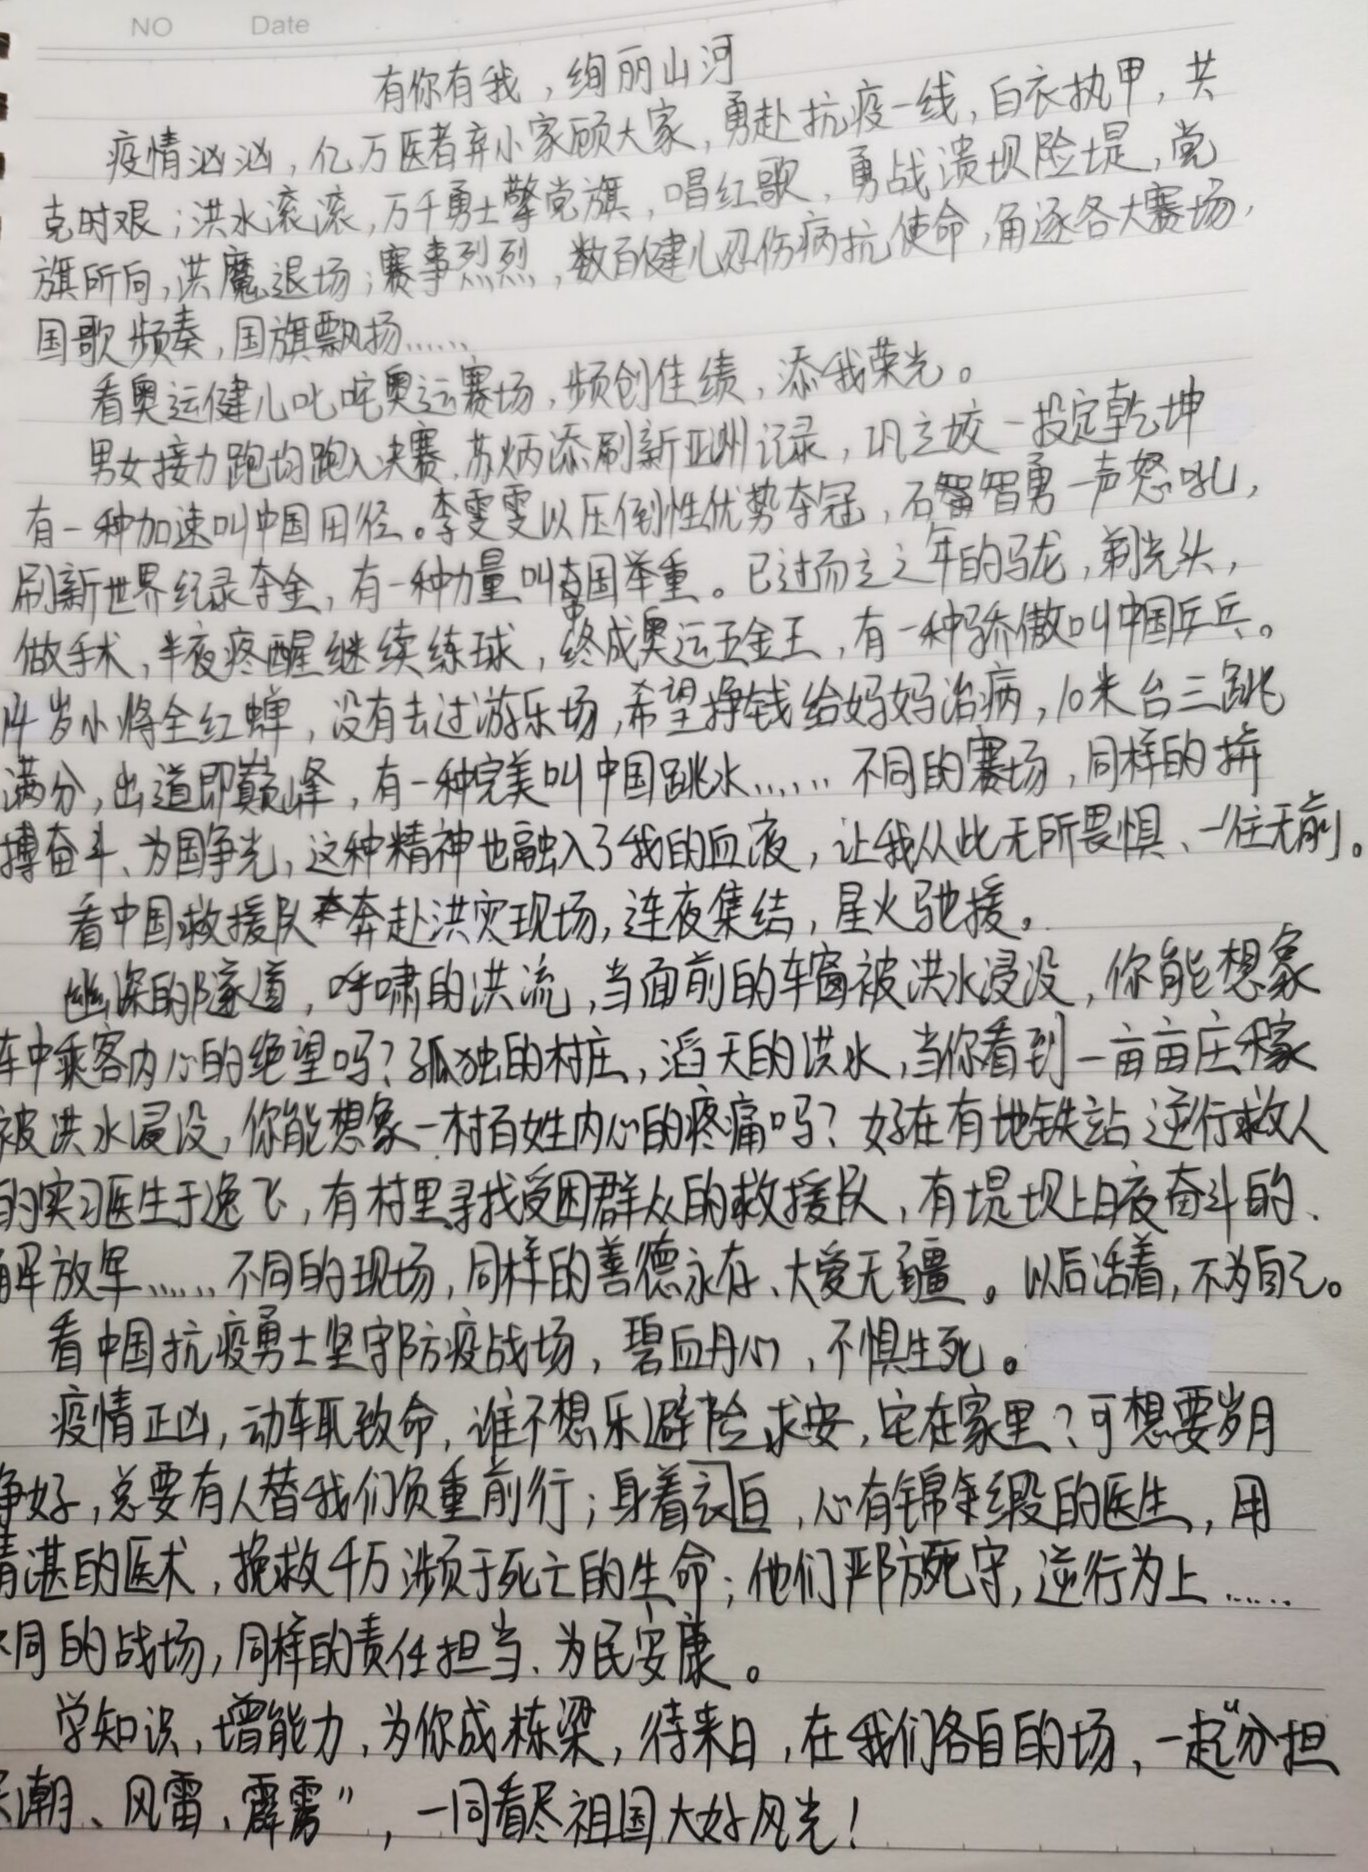 NO Date
有你有我，绚丽山河
疫情汹汹，亿万医者弃小家顾大家，勇赴抗疫一线，白衣执甲，共
克时艰；洪水滚滚，万千勇士擎党旗，唱红歌，勇战溃坝险堤，党
旗所向，洪魔退场；赛事烈烈，数百健儿忍伤病抗使命，角逐各大赛场，
国歌频奏，国旗飘扬……
看奥运健儿叱咤奥运赛场，频创佳绩，添我荣光。
男女接力跑均跑入决赛，苏炳添刷新亚洲记录，巩立姣一投定乾坤
有一种加速叫中国田径。李雯雯以压倒性优势夺冠，石智勇一声怒吼，
刷新世界纪录夺金，有一种力量叫中国举重。已过而立之年的马龙，剃光头，
做手术，半夜疼醒继续练球，终成奥运五金王，有一种骄傲叫中国乒乓。
14岁小将全红蝉，没有去过游乐场，希望挣钱给妈妈治病，10米台三跳
满分，出道即巅峰，有一种完美叫中国跳水……不同的赛场，同样的拼
搏奋斗、为国争光，这种精神也融入了我的血液，让我从此无所畏惧、一往无前。
看中国救援队奔赴洪灾现场，连夜集结，星火驰援。
幽深的隧道，呼啸的洪流，当面前的车窗被洪水浸没，你能想象
车中乘客内心的绝望吗？孤独的村庄，滔天的洪水，当你看到一亩亩庄稼
被洪水浸没，你能想象一村百姓内心的疼痛吗？好在有地铁站逆行救人
的实习医生于逸飞，有村里寻找受困群众的救援队，有堤坝上日夜奋斗的
解放军……不同的现场，同样的善德永存、大爱无疆。以后活着，不为自己。
看中国抗疫勇士坚守防疫战场，碧血丹心，不惧生死。
疫情正凶，动辄致命，谁不想乐避险求安，宅在家里？可想要岁月
静好，总要有人替我们负重前行；身着衣白，心有锦缎的医生，用
精湛的医术，挽救千万濒于死亡的生命；他们严防死守，逆行为上……
不同的战场，同样的责任担当、为民安康。
学知识，增能力，为你成栋梁，待来日，在我们各自的场，一起“分担
潮、风雷、霹雳”，一同看尽祖国大好风光！